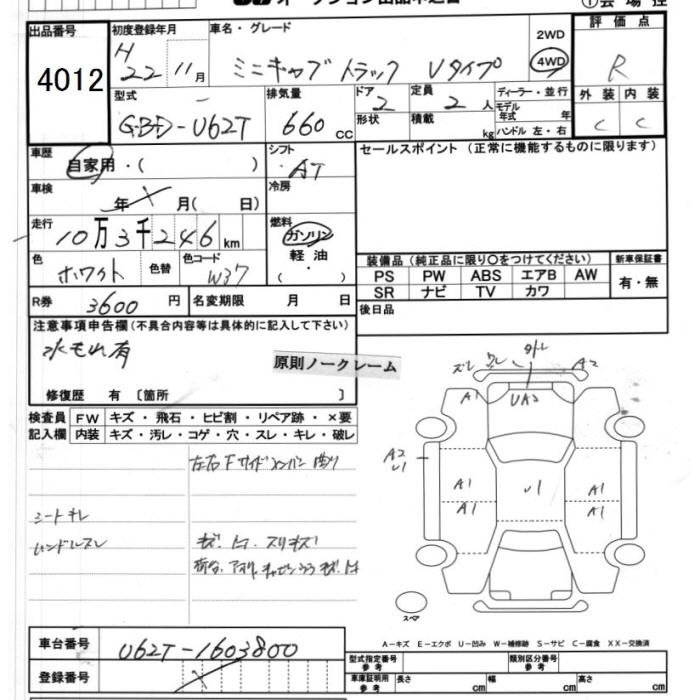 出品番号
4012
初度登録年月
H 22 11月
車名・グレード
ミニキャブトラック Vタイプ
2WD
4WD
評価点
R
外装 内装
C C
型式
GBD-U62T
排気量
660 cc
ドア
2
形状
定員
2 人
積載 kg
ディーラー・並行
モデル年式 年
ハンドル 左・右
車歴
自家用・( )
シフト
AT
セールスポイント(正常に機能するものに限ります)
車検
年 月( 日)
冷房
走行
10万3千246km
燃料
ガソリン
軽油
( ・ )
色
ホワイト
色替
色コード
W37
装備品(純正品に限り○をつけてください)
新車保証書
PS PW ABS エアB AW
有・無
SR ナビ TV カワ
R券 3600円
名変期限 月 日
後日品
注意事項申告欄(不具合内容等は具体的に記入して下さい)
水もれ有
原則ノークレーム
修復歴 有 〔箇所 〕
検査員記入欄
FW キズ・飛石・ヒビ割・リペア跡・×要
内装 キズ・汚レ・コゲ・穴・スレ・キレ・破レ
左右Fサイドメンバー曲り
シートキレ
ハンドルスレ
キズ・凹・スリキズ
荷台、アオリ
ズレ
A2
A1
UA2
A2
U1
A1
A1
U1
A1
A1
スペア
A-キズ E-エクボ U-凹み W-補修跡 S-サビ C-腐食 XX-交換済
車台番号
U62T-1603800
登録番号
型式指定番号 参考
類別区分番号 参考
車庫証明用 参考
長さ cm
幅 cm
高さ cm